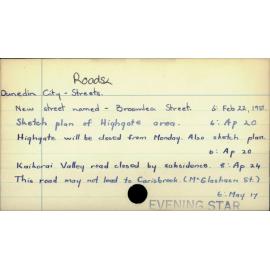 Roads &
Dunedin City - Streets.
New street named - Broomlea Street. 5: Feb 22, 1951.
Sketch plan of Highgate area. 6: Ap 20
Highgate will be closed from Monday. Also sketch plan.
6: Ap 20
Kaikorai Valley road closed by subsidence. 5: Ap. 24
This road may not lead to Carisbrook. (McGlashan St.)
6: May 17
EVENING STAR